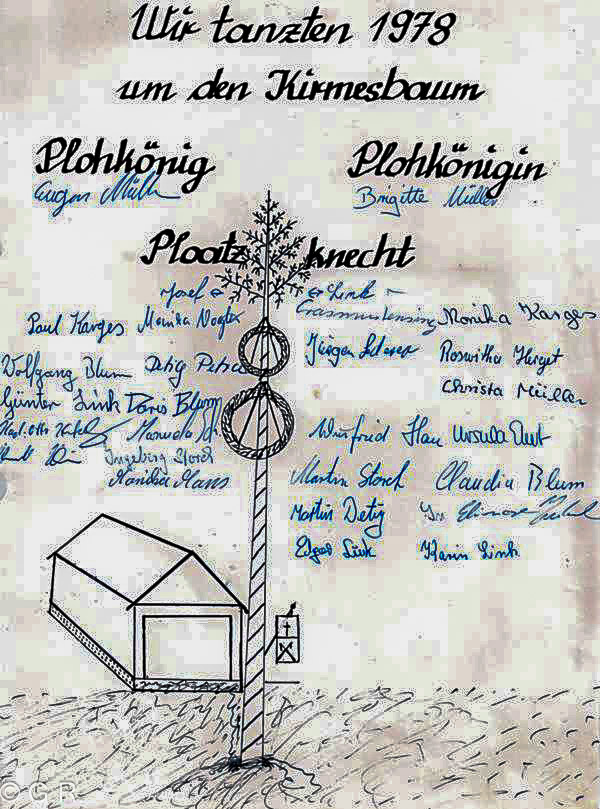 Wir tanzten 1978
um den Kirmesbaum
Plohkönig Plohkönigin
Eugen Müller Brigitte Müller
Plaatzknecht
Josef Link
Paul Karges Monika Vogler
Wolfgang Blum Detig Petra
Günter Link Doris Blum
Manuela
Ingeborg Storch
Monika Maus
Erasmus Lensing Monika Karges
Jürgen Roswitha Herget
Christa Müller
Winfried Hau Ursula
Martin Storch Claudia Blum
Martin Detig
Edgar Link Karin Link
© G R